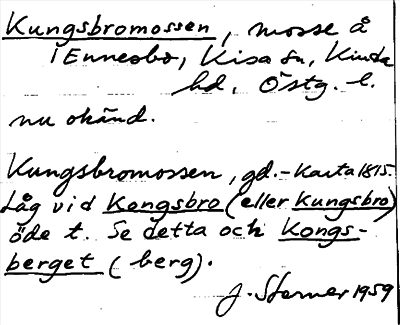 Kungsbromossen, mosse å
i Ennebo, Kisa sn, Kinda
hd, Östg. l.
nu okänd.
Kungsbromossen, gd.-karta 1815.
Låg vid Kongsbro (eller Kungsbro)
öde t. Se detta och Kongs-
berget (berg).
J. Sterner 1959